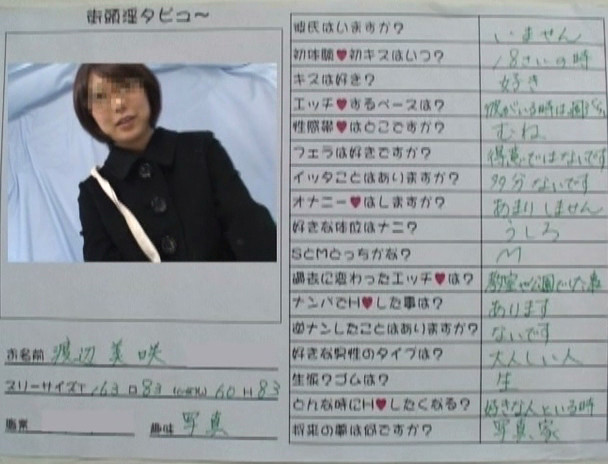 街頭淫タビュ～
彼氏はいますか？ いません
初体験♥初キスはいつ？ 18さいの時
キスは好き？ 好き
エッチ♥するペースは？ 彼がいる時は
性感帯♥はどこですか？ むね
フェラは好きですか？ 得意ではないです
イッタことはありますか？ 多分ないです
オナニー♥はしますか？ あまりしません
好きな体位はナニ？ うしろ
SとMどっちかな？ M
過去に変わったエッチ♥は？ 教室や公園でした事
ナンパでH♥した事は？ あります
逆ナンしたことはありますか？ ないです
好きな男性のタイプは？ 大人しい人
生派？ゴムは？ 生
どんな時にH♥したくなる？ 好きな人といる時
将来の夢は何ですか？ 写真家
お名前 渡辺美咲
スリーサイズT 163 B 83 W 60 H 83
職業 趣味 写真